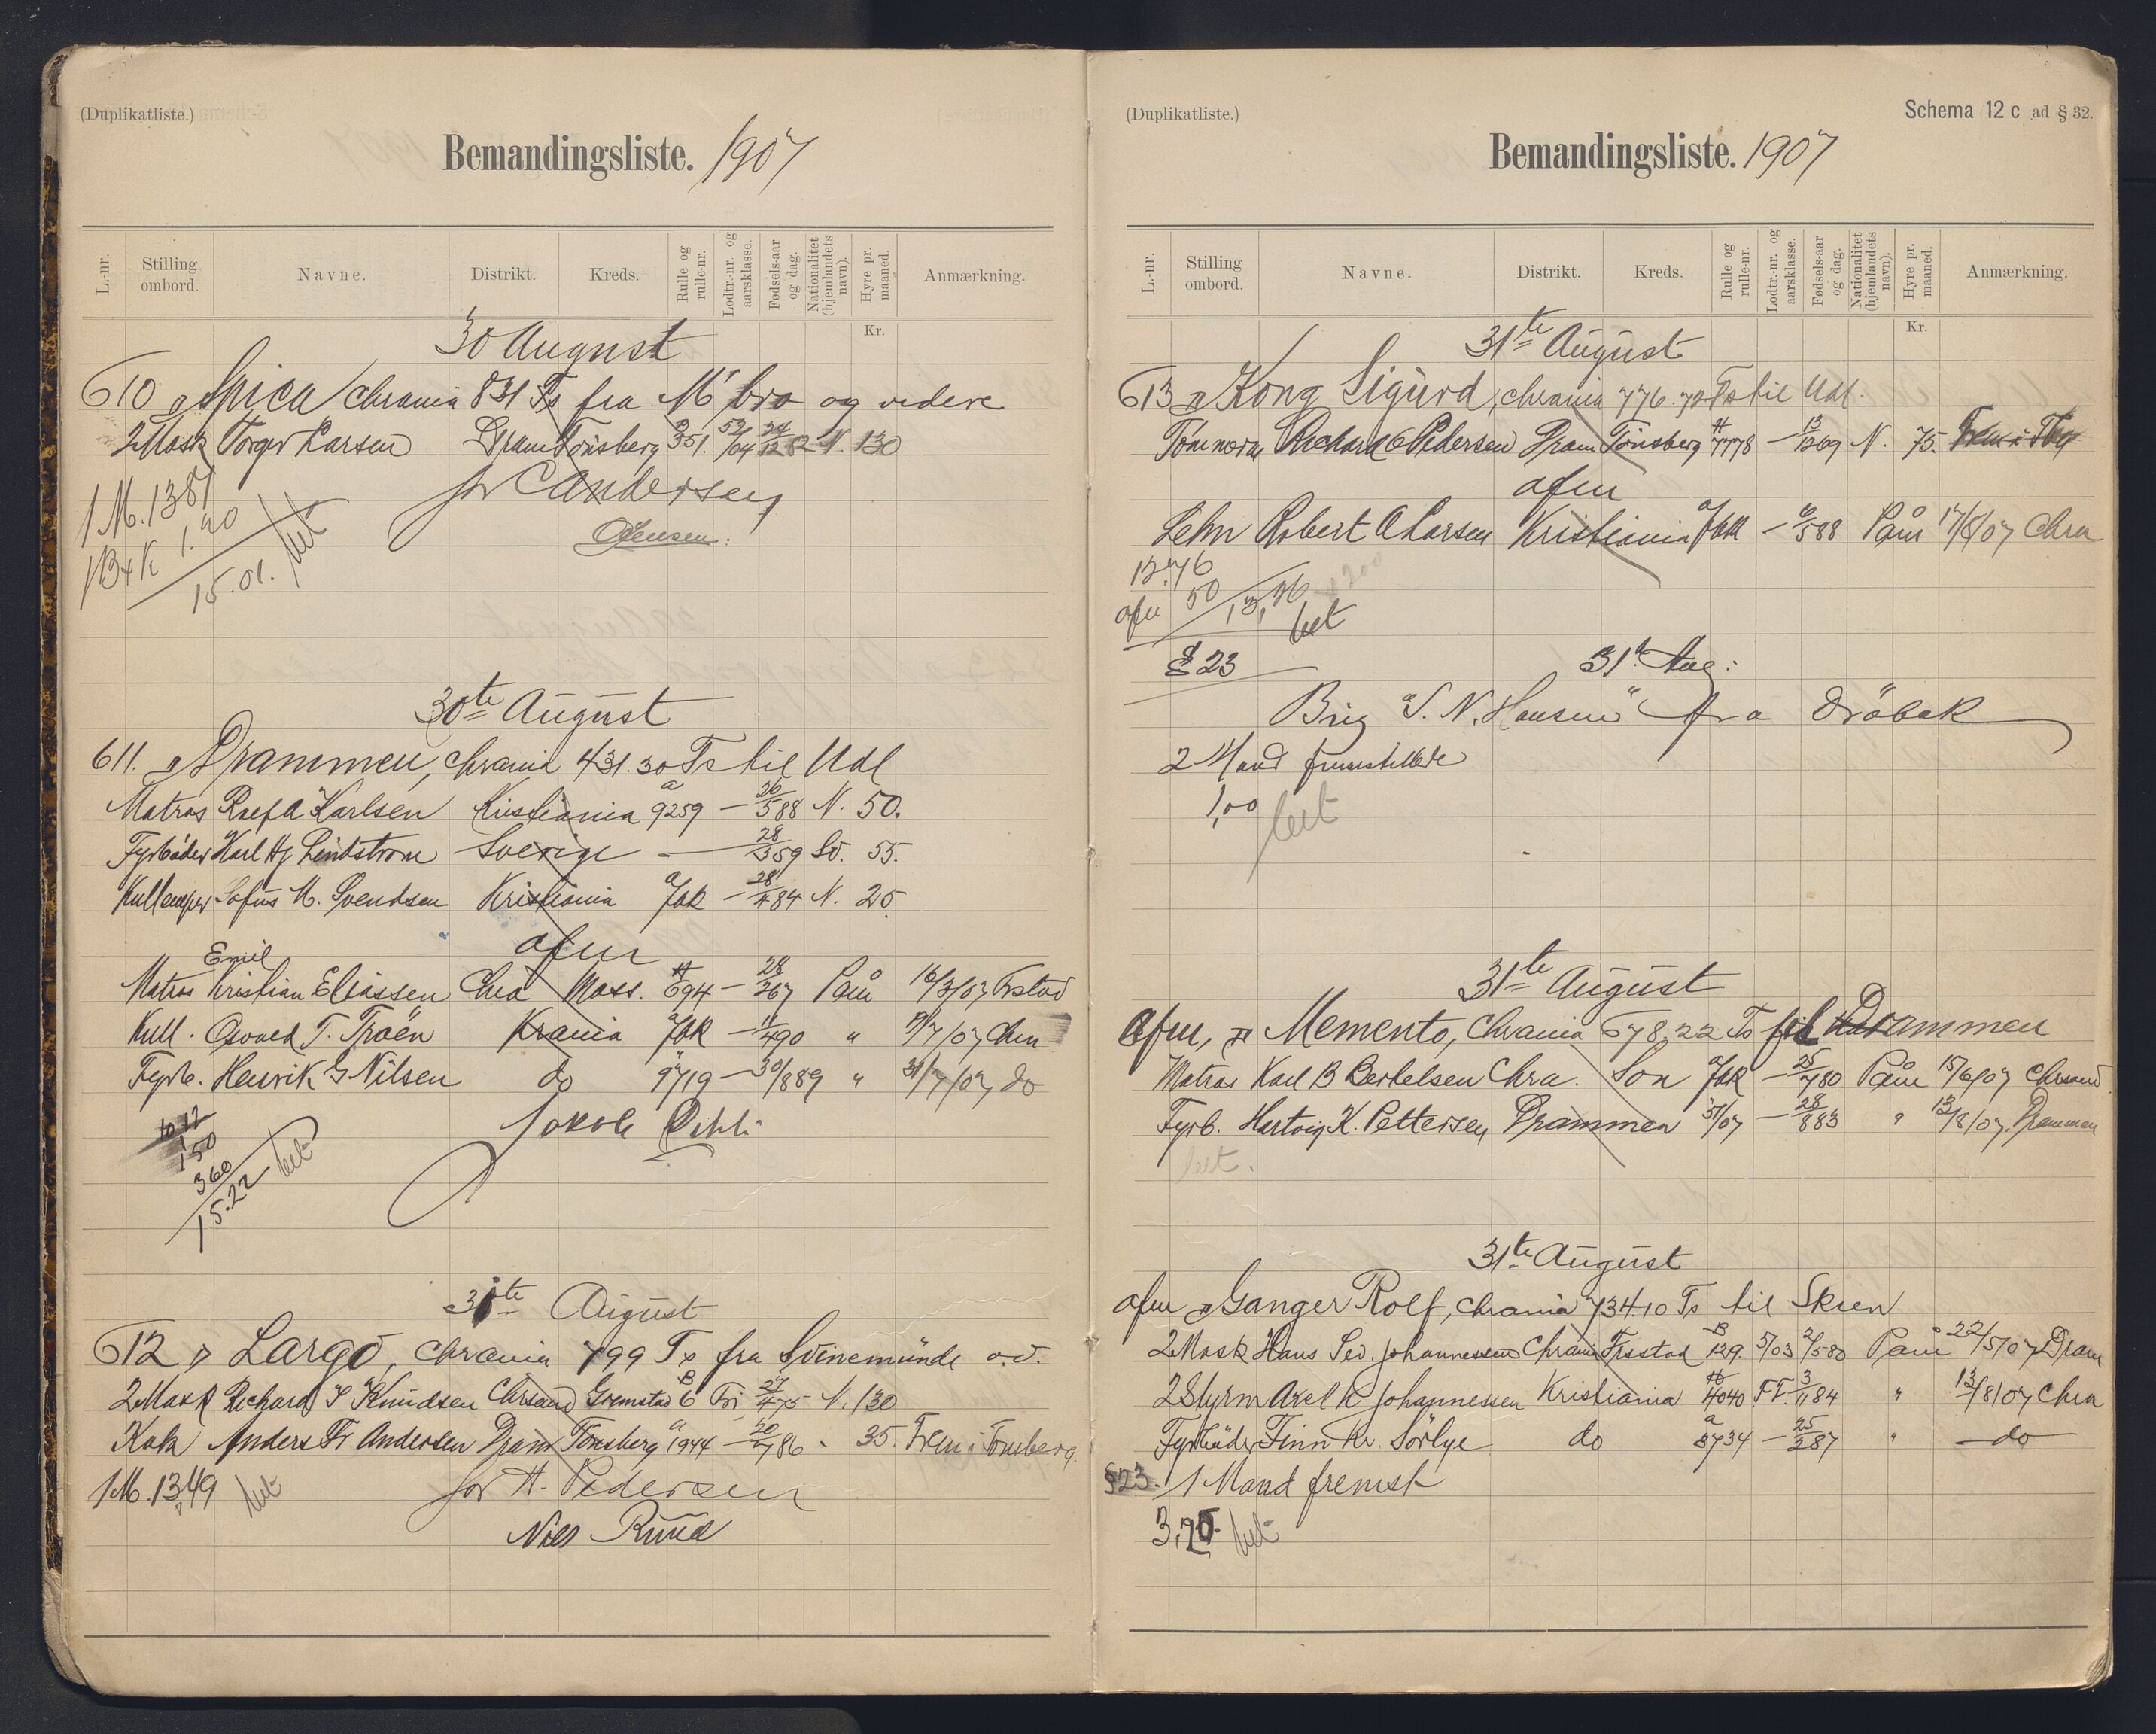 (Duplikatliste.)
Bemandingsliste. 1907
L.-nr.
Stilling ombord.
Navne.
Distrikt.
Kreds.
Rulle og rulle-nr.
Lodtr.-nr. og aarsklasse.
Fødsels-aar og dag.
Nationalitet (hjemlandets navn).
Hyre pr. maaned.
Anmærkning.
Kr.
30 August
610 "Spica" Chrania 831 Ts fra M'bro og videre
2 Mask Torger Larsen Dram Tönsberg 351. N. 130
for C Andersen
1 M. 13.81
1.20
15.01. bet
30te August
611. "Drammen, Chrania 431.30 Ts til Udl
Matros Karlsen Kristiania a 9259 — 26/5 88 N. 50.
Fyrböder Karl Hj Lindstrom Sverige — 28/3 59 Sv. 55.
Kullemper Sofus M. Svendsen Kristiania — 28/4 84 N. 25.
afm
Emil
Matros Kristian Eliassen Chra Moss. 694 — 28/2 67 Påm 16/3/07 Frstad
Kull. Osvald T. Troën Krania — 11/4 90 " /7/07 Chra
Fyrb. Henrik G Nilsen do 9719 — 30/8 89 " 31/7/07 do
1012
150
360
15.22 bet
31te August
612 " Largo, Chrania 799 Ts fra Svinemünde o.v.
2 Mask Richard S Knudsen Chrsand Grimstad B 6 Fri 27/4 75 N. 130
Kok Anders Fr Andersen Dram Tönsberg a 1944 — 20/7 86 " 35. Frem i Tönsberg
1 M. 13.49 bet
for H. Pedersen
Nils Ruud
(Duplikatliste.)
Schema 12 c ad § 32.
Bemandingsliste. 1907
L.-nr.
Stilling ombord.
Navne.
Distrikt.
Kreds.
Rulle og rulle-nr.
Lodtr.-nr. og aarsklasse.
Fødsels-aar og dag.
Nationalitet (hjemlandets navn).
Hyre pr. maaned.
Anmærkning.
Kr.
31te August
613 "Kong Sigurd, Chrania 776.72 Ts til Udl.
Tömmerm Richard Pedersen Dram Tönsberg 7778 — 13/12 69 N. 75.
afm
Lehn Robert A Larsen Kristiania — 588 Påm 17/6/07 Chra
12.76
afm 50
bet
§ 23
31te Aug:
Brig "S. N. Hansen" fra Dröbak
2 Mand fremstillede
1,00
bet
31te August
afm, " Memento, Chrania 678,22 Ts til Drammen
Matros Karl B Berkelsen Chra. Son — 25/7 80 Påm 15/6/07 Chrsand
Fyrb. Hartvig K. Pettersen Drammen 5/07 — 28/8 83 " 13/8/07. Drammen
bet.
31te August
afm "Ganger Rolf, Chrania 734.10 Ts til Skien
2 Mask Hans Sev. Johannessen Chrania Frstad B 129. 5/03 2/5 80 Påm 22/5/07 Dram
2 Styrm Axel K Johannessen Kristiania 4040 F.F. 3/11 84 " 13/8/07 Chra
Fyrböder Finn Kr. Sörlye do a 3734 — 25/2 87 " do
§ 23. 1 Mand fremst
bet